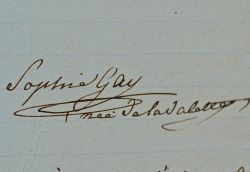 Sophie Gay
née de la Valette